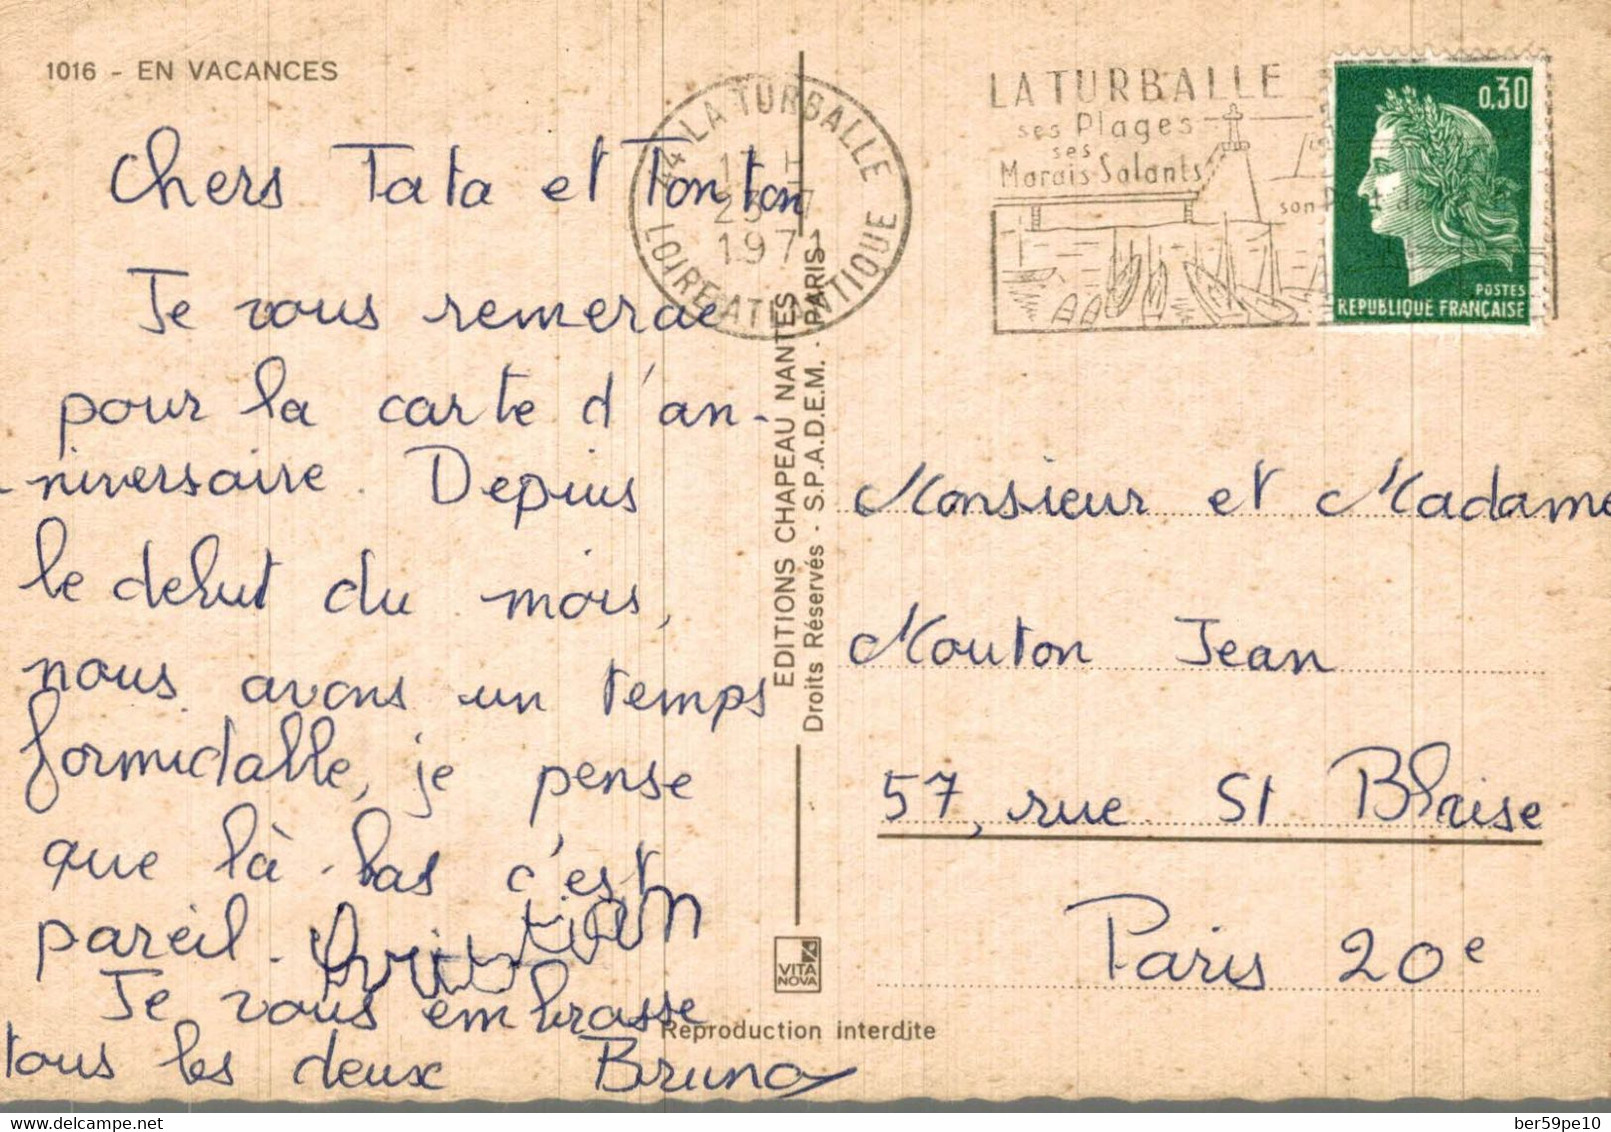 1016 - EN VACANCES
Chers Tata et Tonton
Je vous remercie
pour la carte d'an-
-niversaire. Depuis
le debut du mois,
nous avons un temps
formidable, je pense
que là-bas c'est
pareil. Christian
Je vous embrasse
tous les deux Bruno
44 LA TURBALLE
17 H
23-7
1971
LOIRE-ATLANTIQUE
LA TURBALLE
ses Plages
ses
Marais Salants
son Port de
0,30
POSTES
REPUBLIQUE FRANÇAISE
EDITIONS CHAPEAU NANTES
Droits Réservés - S.P.A.D.E.M. - PARIS
Monsieur et Madame
Mouton Jean
57, rue St Blaise
Paris 20e
VITA
NOVA
Reproduction interdite
ber59pe10